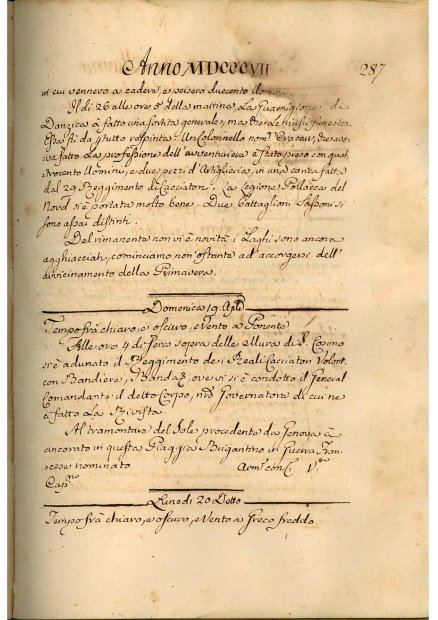 Anno MDCCCVII 287
in cui vennero a cadere, e persero duecento Uomini.
Il dì 26 alle ore 5 della mattina, la Guarnigione di
Danzica à fatto una sortita generale, ma
da p tutto respinta. Un Colonnello nom.
fatto la professione dell'avventuriere è stato preso con quat
trocento Uomini, e due pezzi d'Artiglieria, in una
dal 23 Reggimento di Cacciatori. La Legione Pollacca del
Nord si è portata molto bene. Due Battaglioni Sassoni si
sono assai distinti.
Del rimanente non vi è novità i Laghi sono ancora
agghiacciati, cominciamo non'ostante ad'accorgersi dell'
avvicinamento della Primavera.
Domenica 19 Aple
Tempo frà chiaro, e oscuro, e Vento a Ponente
Alle ore 4 di sera sopra delle Mura di S. Cosimo
si è adunato il Reggimento dei Reali Cacciatori Volont.
con Bandiere, Banda &, ove vi si è condotto il General
Comandante il detto Corpo, nro Governatore di cui ne
à fatto la Rivista.
Al tramontare del Sole procedente da Genova à
ancorato in questa Piaggia Brigantino in Guerra Fran
cese nominato Arm. con C. V.
Cap.no
Lunedì 20 Detto
Tempo frà chiaro, e oscuro, e Vento a Greco freddo.